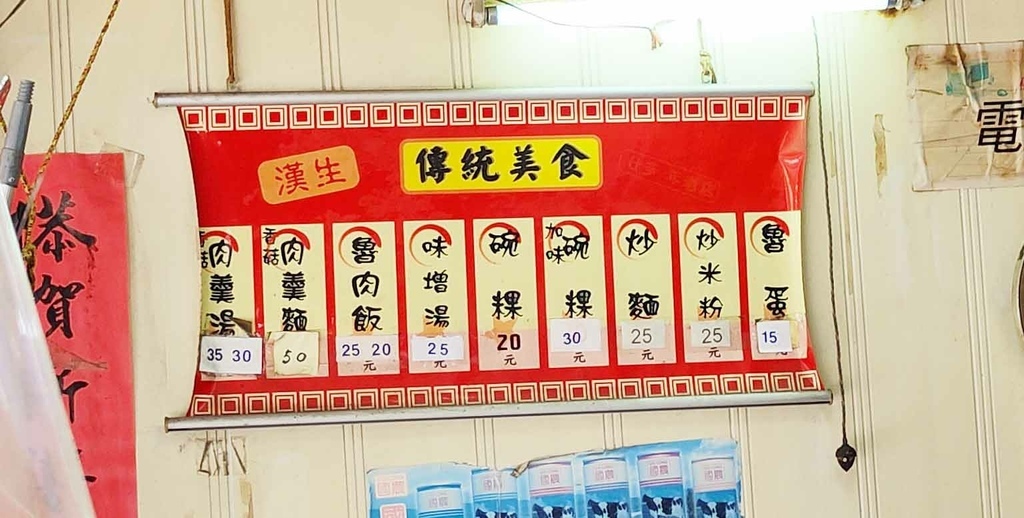 漢生
傳統美食
香菇肉羹湯
35 30
香菇肉羹麵
50
魯肉飯
25 20
元
味增湯
25
元
碗粿
20
元
加味碗粿
30
炒麵
25
元
炒米粉
25
元
魯蛋
15
恭賀新
電
國農
國農
國農
國農
國農
國農